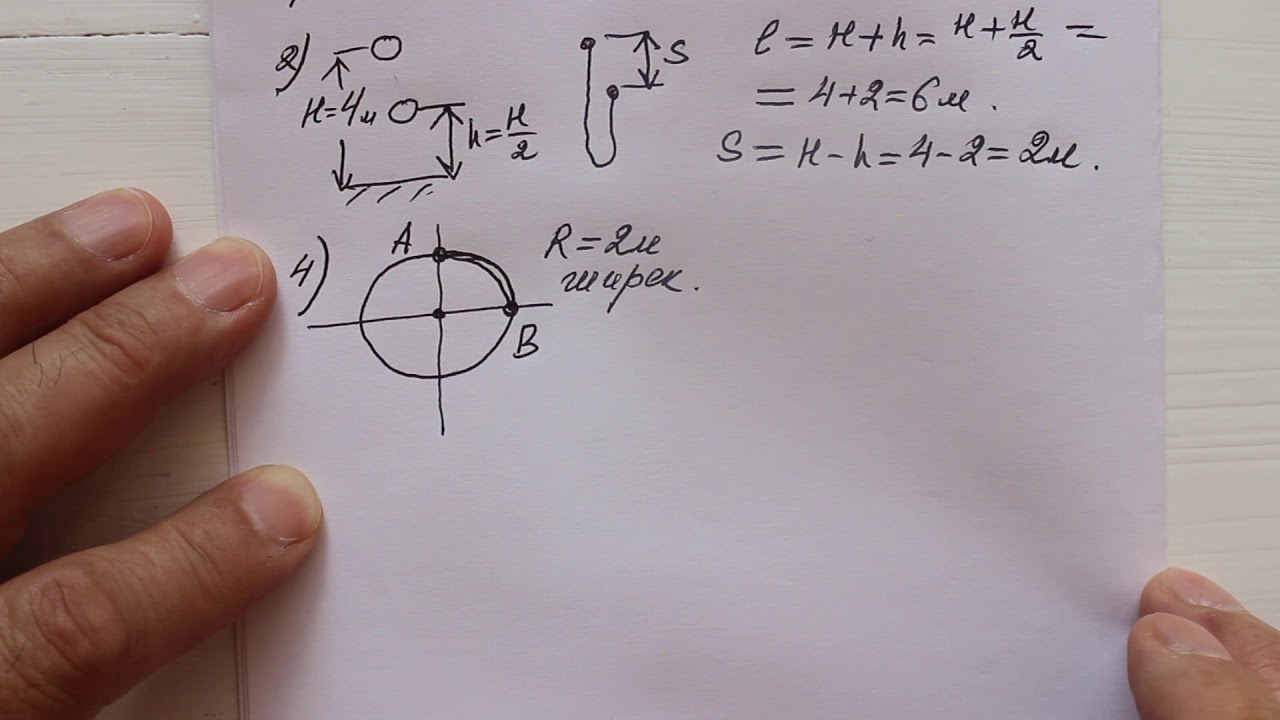 2)
H=4м
h=H/2
S
l=H+h=H+H/2=
=4+2=6м.
S=H-h=4-2=2м.
4)
A
B
R=2м
ширек.